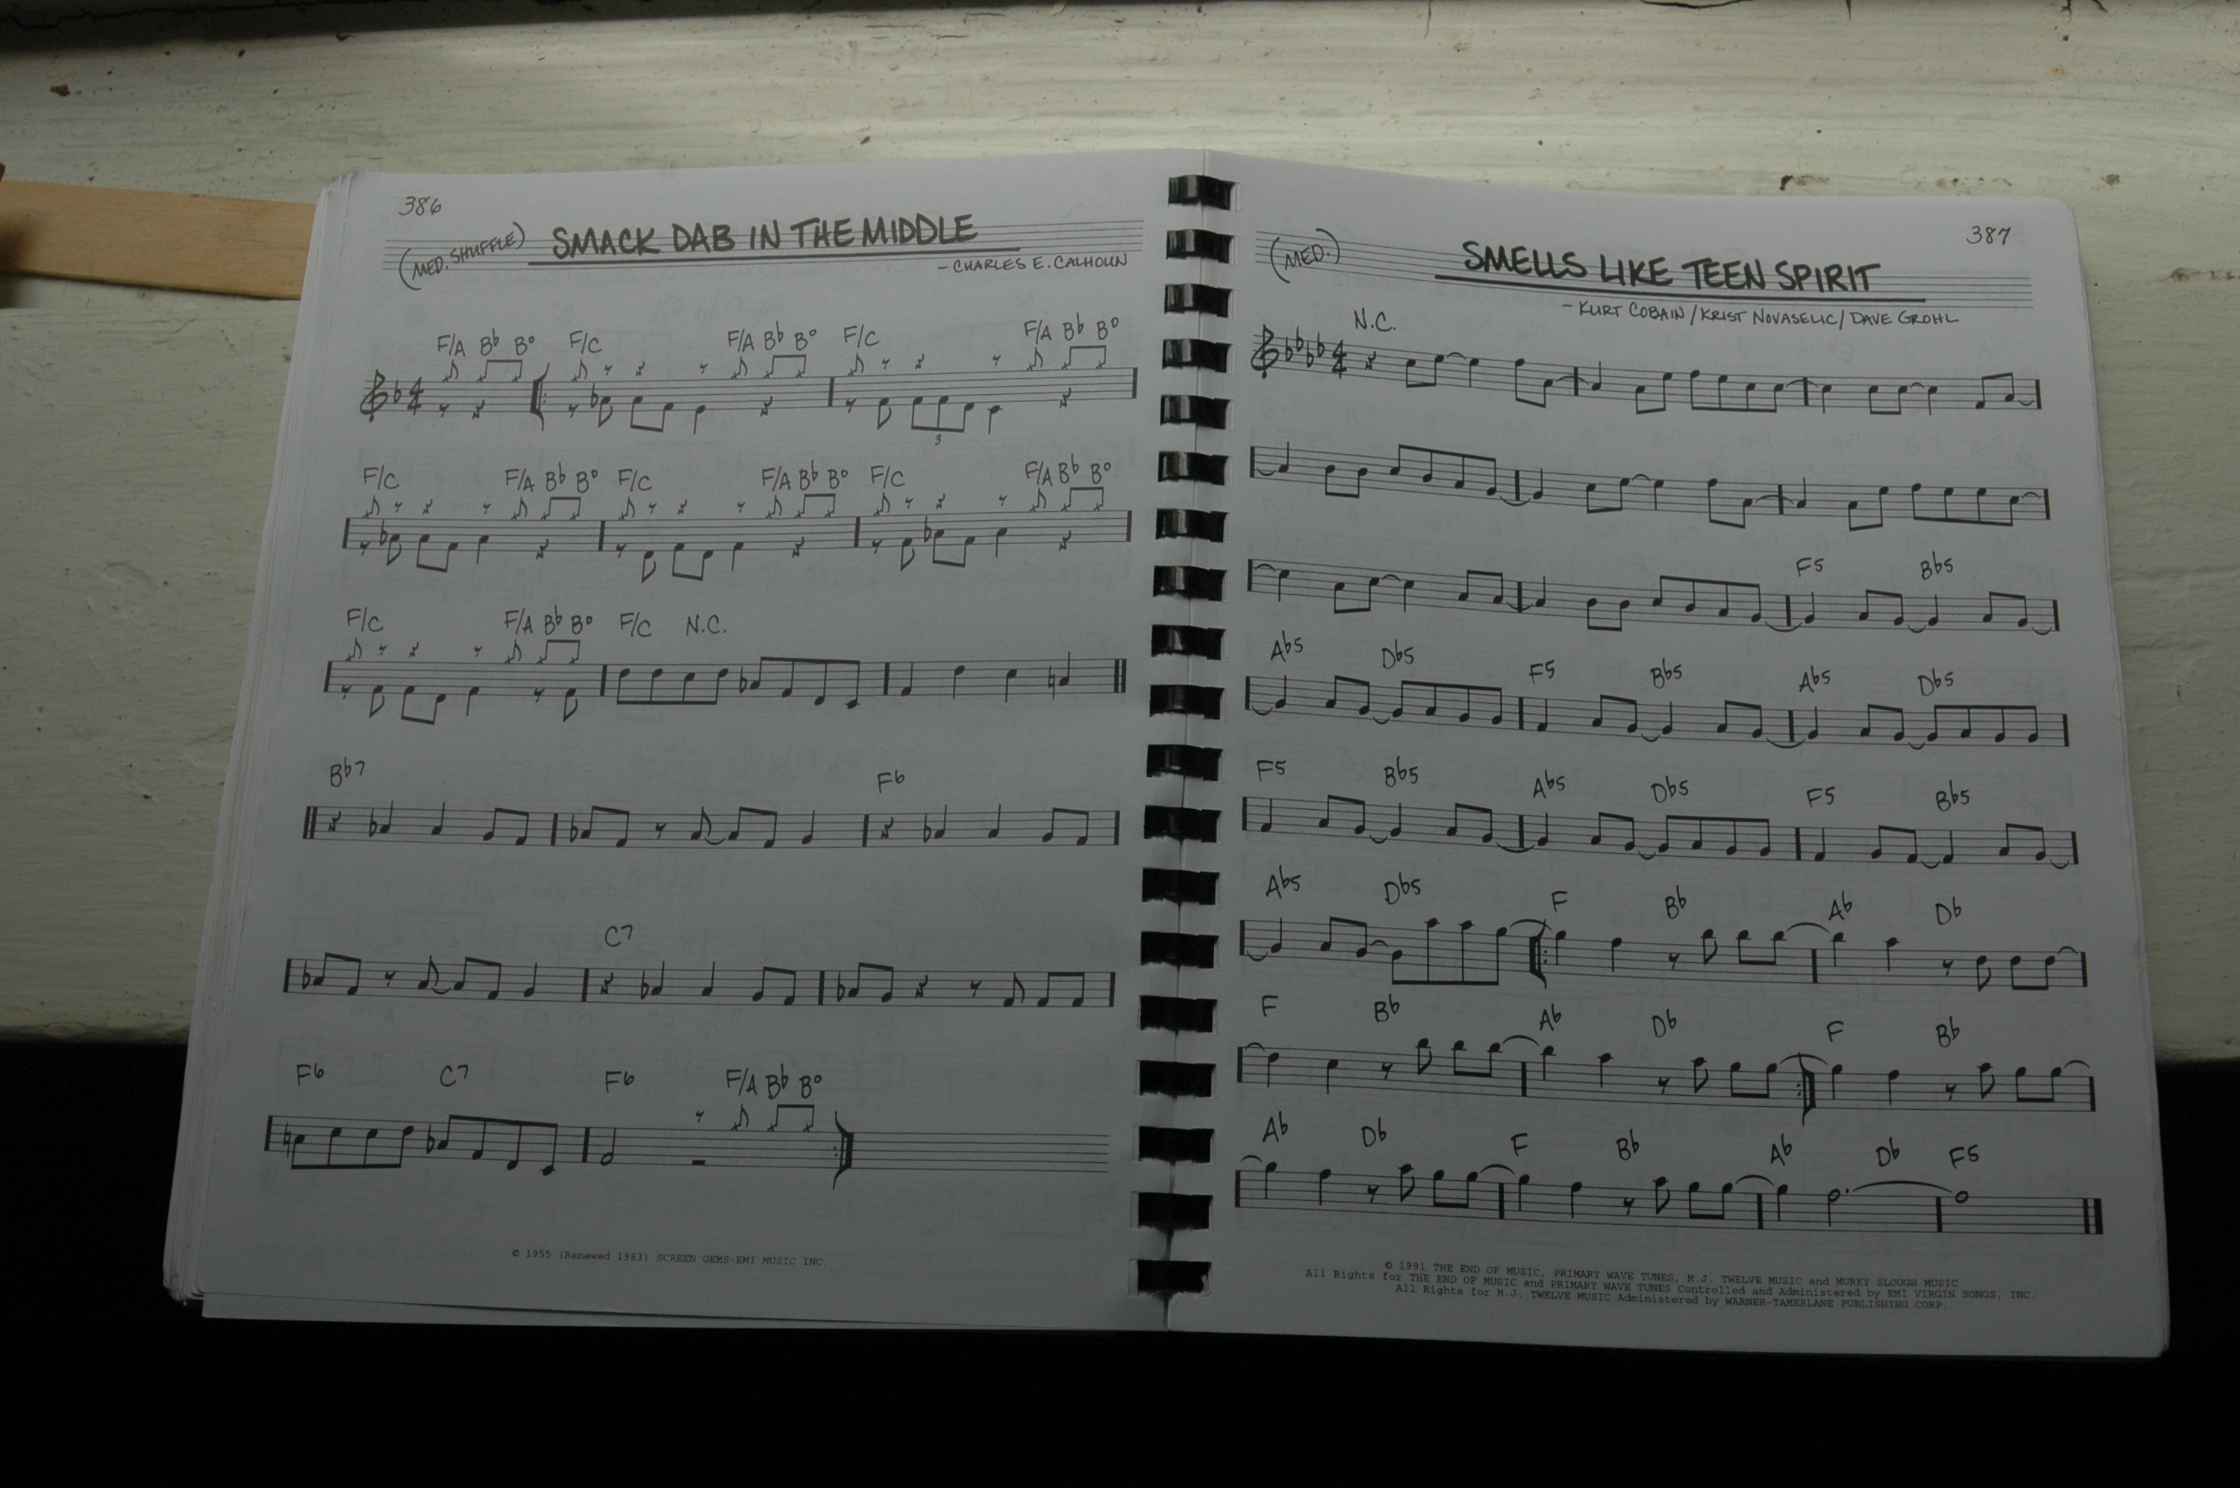 386
(MED. SHUFFLE) SMACK DAB IN THE MIDDLE
- CHARLES E. CALHOUN
F/A B♭ B° F/C F/A B♭ B° F/C F/A B♭ B°
3
F/C F/A B♭ B° F/C F/A B♭ B° F/C F/A B♭ B°
F/C F/A B♭ B° F/C N.C.
B♭7 F6
C7
F6 C7 F6 F/A B♭ B°
© 1955 (Renewed 1983) SCREEN GEMS-EMI MUSIC INC.
387
(MED.) SMELLS LIKE TEEN SPIRIT
- KURT COBAIN/KRIST NOVASELIC/DAVE GROHL
N.C.
F5 B♭5
A♭5 D♭5 F5 B♭5 A♭5 D♭5
F5 B♭5 A♭5 D♭5 F5 B♭5
A♭5 D♭5 F B♭ A♭ D♭
F B♭ A♭ D♭ F B♭
A♭ D♭ F B♭ A♭ D♭ F5
© 1991 THE END OF MUSIC, PRIMARY WAVE TUNES, M.J. TWELVE MUSIC and MURKY SLOUGH MUSIC
All Rights for THE END OF MUSIC and PRIMARY WAVE TUNES Controlled and Administered by EMI VIRGIN SONGS, INC.
All Rights for M.J. TWELVE MUSIC Administered by WARNER-TAMERLANE PUBLISHING CORP.